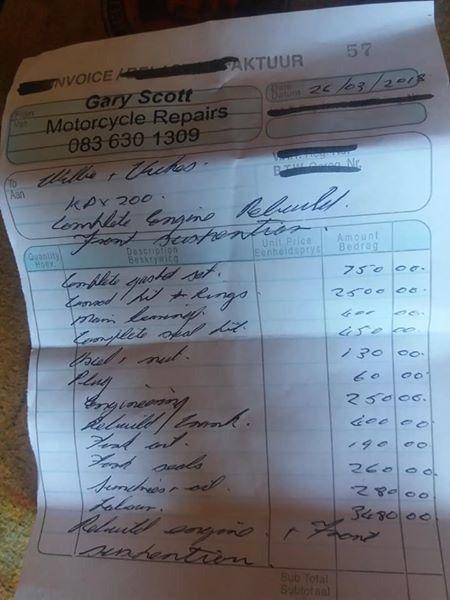 57
INVOICE / AKTUUR
From
Van
Gary Scott
Motorcycle Repairs
083 630 1309
Date
Datum 26/03/2018
To
Aan
Willie +
B.T.W. Nr.
KDX 200.
Complete Engine Rebuild.
Front Suspention.
Quantity Description Unit Price Amount
Hoev. Beskrywing Eenheidsprys Bedrag
Complete gasket set. 750 00.
Conrod kit + Rings 2500 00.
Main bearings 400 00.
Complete seal kit. 450 00.
nut. 130 00.
Plug 60 00.
Engineering 250 00.
Rebuild / 400 00.
Fork oil. 190 00.
Fork seals 260 00.
Sundries + oil. 280 00.
Labour. 3480 00.
Rebuild engine + Front
suspention
Sub Total
Subtotaal